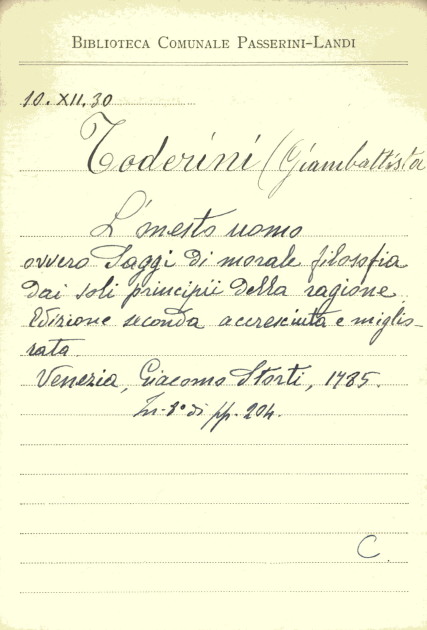 BIBLIOTECA COMUNALE PASSERINI-LANDI
10. XII. 30
Toderini (Giambattista
L'onesto uomo
ovvero Saggi di morale filosofia
dai soli principii della ragione.
Edizione seconda accresciuta e miglio-
rata.
Venezia, Giacomo Storti, 1785.
In-8° di pp. 204.
C